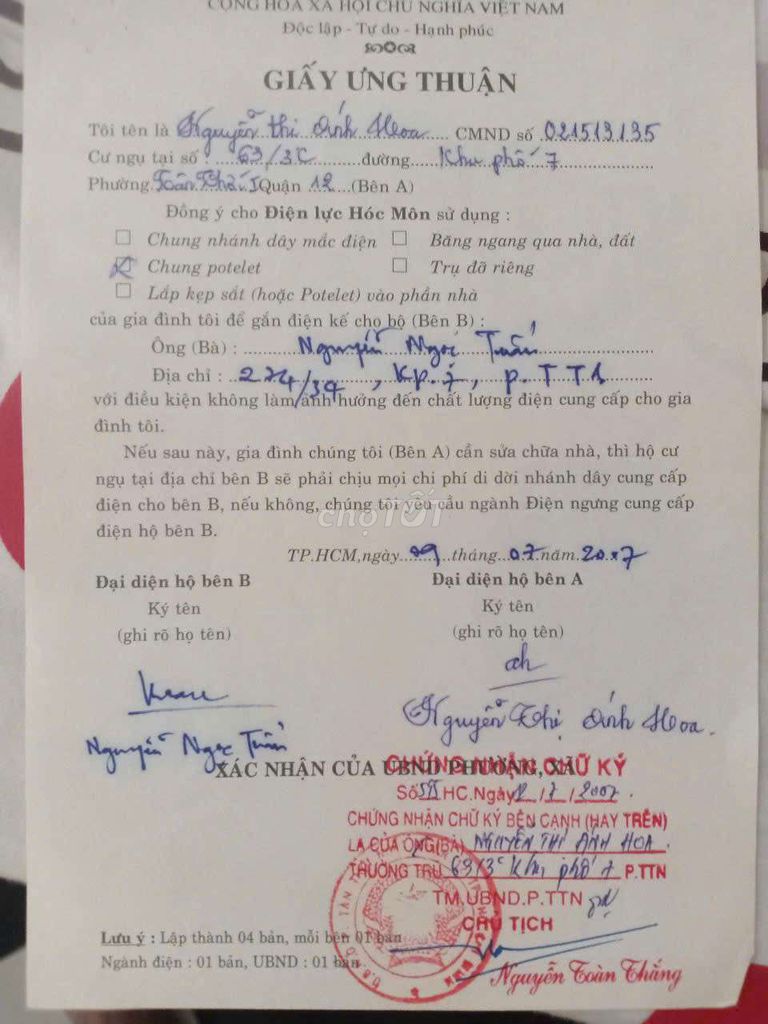 CỘNG HÒA XÃ HỘI CHỦ NGHĨA VIỆT NAM
Độc lập - Tự do - Hạnh phúc
GIẤY ƯNG THUẬN
Tôi tên là Nguyễn Thị Ánh Hoa CMND số 021513135
Cư ngụ tại số : 63/3C đường Khu phố 7
Phường Quận 12 (Bên A)
Đồng ý cho Điện lực Hóc Môn sử dụng :
Chung nhánh dây mắc điện Băng ngang qua nhà, đất
Chung potelet Trụ đỡ riêng
Lắp kẹp sắt (hoặc Potelet) vào phần nhà
của gia đình tôi để gắn điện kế cho bộ (Bên B) :
Ông (Bà) : Nguyễn Ngọc Tuấn
Địa chỉ : 224/34, KP. , P. TT
với điều kiện không làm ảnh hưởng đến chất lượng điện cung cấp cho gia
đình tôi.
Nếu sau này, gia đình chúng tôi (Bên A) cần sửa chữa nhà, thì hộ cư
ngụ tại địa chỉ bên B sẽ phải chịu mọi chi phí di dời nhánh dây cung cấp
điện cho bên B, nếu không, chúng tôi yêu cầu ngành Điện ngưng cung cấp
điện hộ bên B.
chợTỐT
TP.HCM, ngày 09 tháng 07 năm 2007
Đại diện hộ bên B Đại diện hộ bên A
Ký tên Ký tên
(ghi rõ họ tên) (ghi rõ họ tên)
Nguyễn Thị Ánh Hoa.
Nguyễn Ngọc Tuấn
XÁC NHẬN CỦA UBND PHƯỜNG, XÃ
CHỨNG NHẬN CHỮ KÝ
Số HC.Ngày 12/7/2007.
CHỨNG NHẬN CHỮ KÝ BÊN CẠNH (HAY TRÊN)
LÀ CỦA ÔNG(BÀ) NGUYỄN THỊ ÁNH HOA.
THƯỜNG TRÚ 63/3C Khu phố 7 P.TTN
TM.UBND.P.TTN
CHỦ TỊCH
Lưu ý : Lập thành 04 bản, mỗi bên 01 bản
Ngành điện : 01 bản, UBND : 01 bản
Nguyễn Toàn Thắng